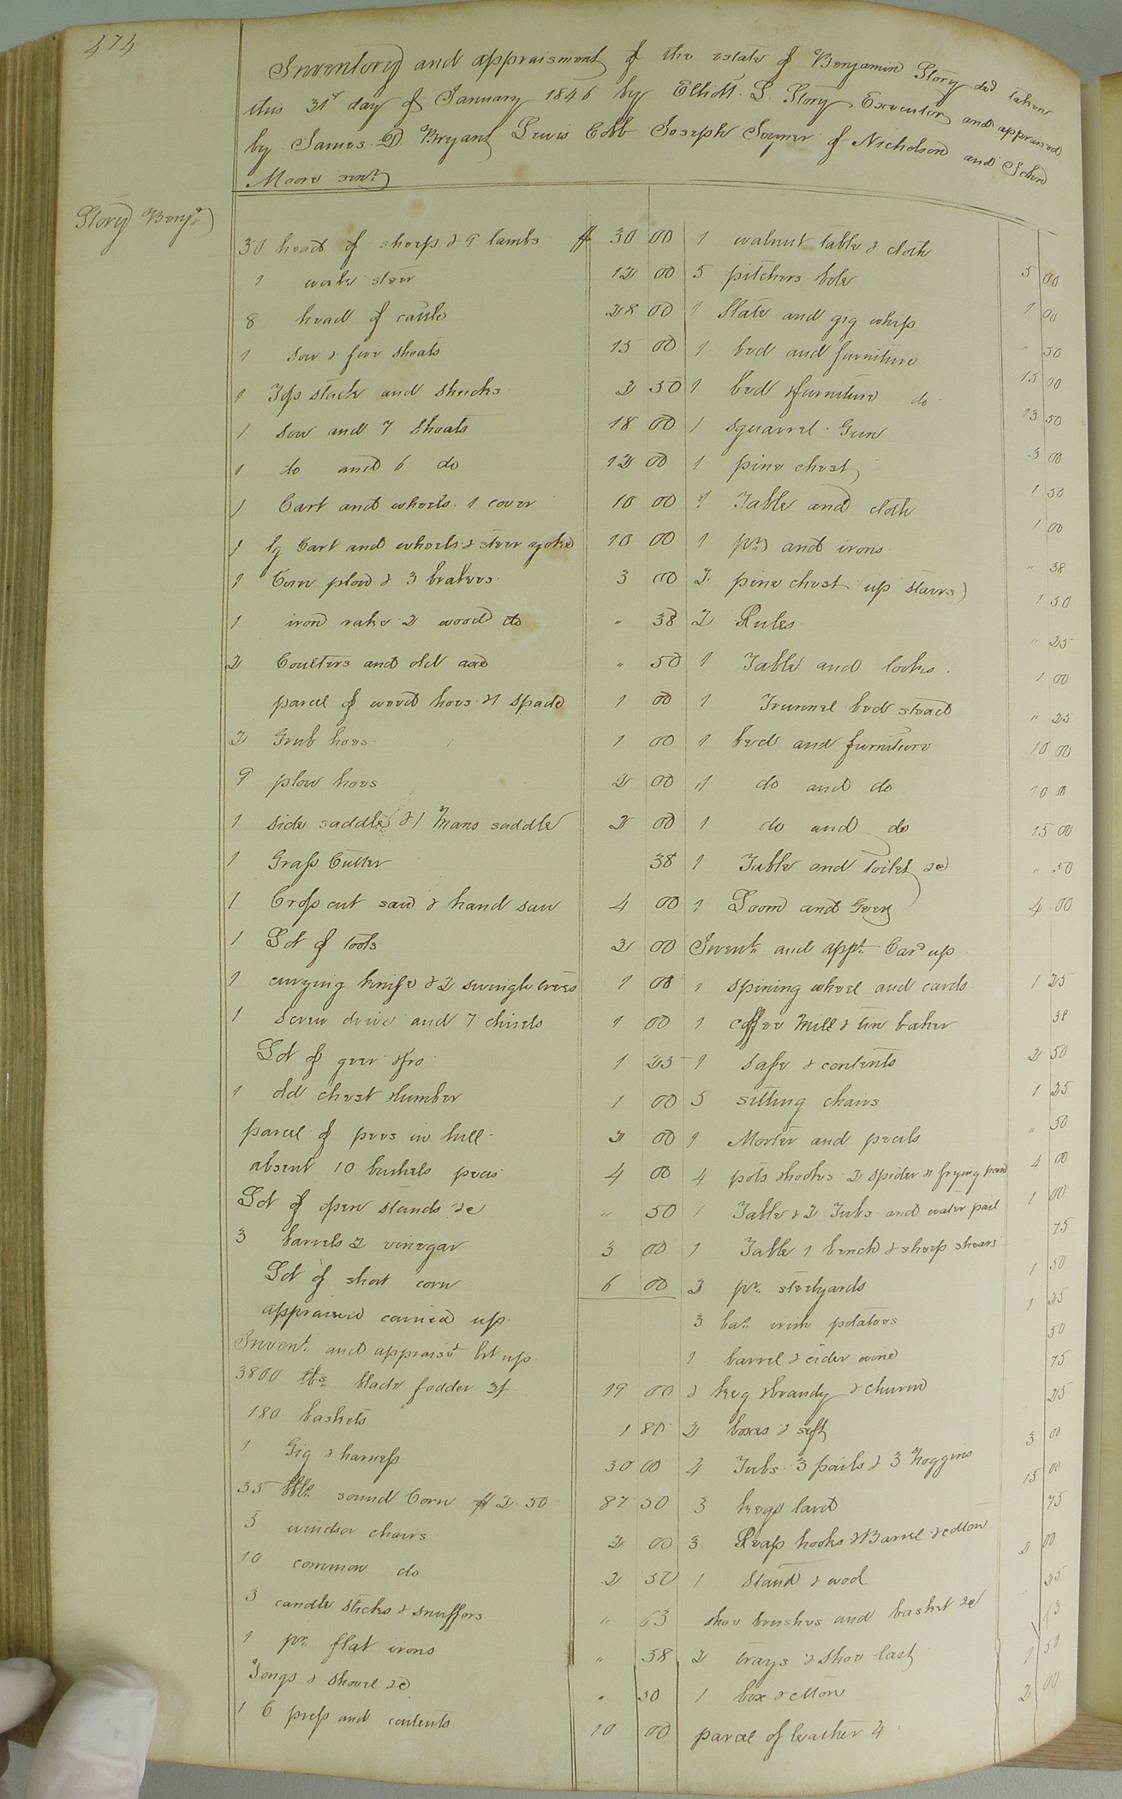 474
Inventory and appraisment of the estate of Benjamin Story decd taken
this 31st day of January 1846 by Elliott L Story Executor and appraised
by James D. Bryant Lewis Cobb Joseph Joyner of Nicholson and Scherod
Moore sent
Story Benjn
30 head of sheep & 9 lambs $ 30 00
1 work steer 12 00
8 head of cattle 28 00
1 sow & five shoats 15 00
1 Top stack and shucks 2 50
1 Sow and 7 Shoats 18 00
1 do and 6 do 12 00
1 Cart and wheels 1 cover 10 00
1 lg Cart and wheels & steer yoke 10 00
1 Corn plow & 3 3 00
1 iron rake 2 wood do " 38
2 Coulters and old axe " 50
parcel of weed hoes & 1 spade 1 00
2 Grub hoes 1 00
9 plow hoes 2 00
1 side saddle & 1 Mans saddle 2 00
1 Grass Cutter 38
1 Cross cut saw & hand saw 4 00
1 Lot of tools 2 00
1 currying knife & 2 swingle trees 1 00
1 Screw driver and 7 chisels 1 00
Lot of geer &fro 1 25
1 old chest &lumber 1 00
parcel of peas in hull 2 00
about 10 bushels peas 4 00
Lot of open stands &c " 50
3 barrels & vinegar 3 00
Lot of short corn 6 00
appraised carried up
Invent. and appraist bt up
3800 lbs blade fodder 19 00
180 baskets 1 80
1 Gig & harness 30 00
35 bbls sound Corn $ 2 50 87 50
5 windsor chairs 2 00
10 common do 2 50
3 candle sticks & snuffers " 63
1 pr. flat irons " 38
Tongs & shovel &c " 50
1 C press and contents 10 00
1 walnut table & cloth 5 00
5 pitchers bole 1 00
1 Slate and gig whip " 50
1 bed and furniture 15 00
1 bed & furniture do 13 50
1 squarrel Gun 3 00
1 pine chest 1 50
1 Table and cloth 1 00
1 pr and irons " 38
2 pine chest up stairs 1 50
2 Rules " 25
1 Table and books 1 00
1 Trunnel bed stead " 25
1 bed and furniture 10 00
1 do and do 10 00
1 do and do 15 00
1 Table and Toilet &c " 50
1 Loom and Geer 4 00
Invent. and appt. Card up
1 spining wheel and cards 1 25
1 coffee Mill & tin baker 38
1 safe & contents 2 50
5 sitting chairs 1 25
1 Morter and peails " 50
4 pots &hooks 2 spider & frying pan 4 00
1 Table & 2 Tubs and water pail 1 00
1 Table 1 bench & sheep shears 75
2 pr. steelyards 1 50
3 irish potatoes 1 25
1 barrel & cider wine 50
& keg &brandy & churn 75
2 boxes & sift 25
4 Tubs 3 pails & 3 Noggins 3 00
3 kegs lard 15 00
3 Reap hooks & Barrel &cotton 75
1 Stand & wool 2 00
shoe brushes and basket &c 25
2 trays & shoe last 63
1 box & cotton 1 50
parcel of leather 4 2 00